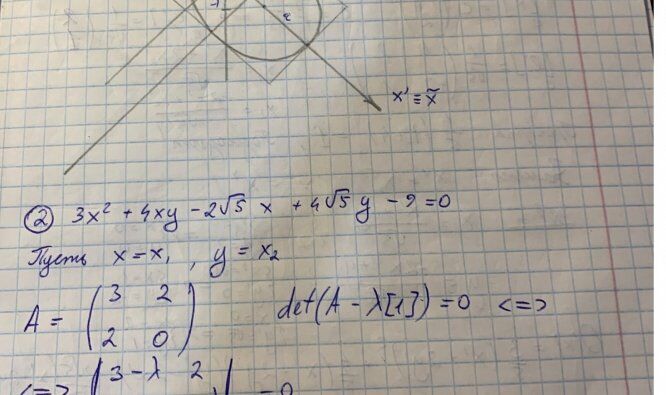 2
x' ≡ x̃
② 3x² + 4xy - 2√5 x + 4√5 y - 9 = 0
Пусть x = x₁ , y = x₂
A = (3 2 / 2 0) det(A - λ[1]) = 0 <=>
<=> |3 - λ 2 = 0